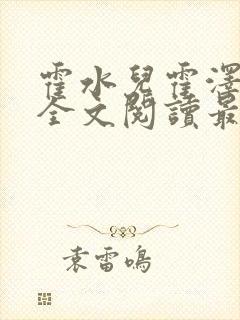 霍水兒霍澤
全文閱讀最
袁雷鳴